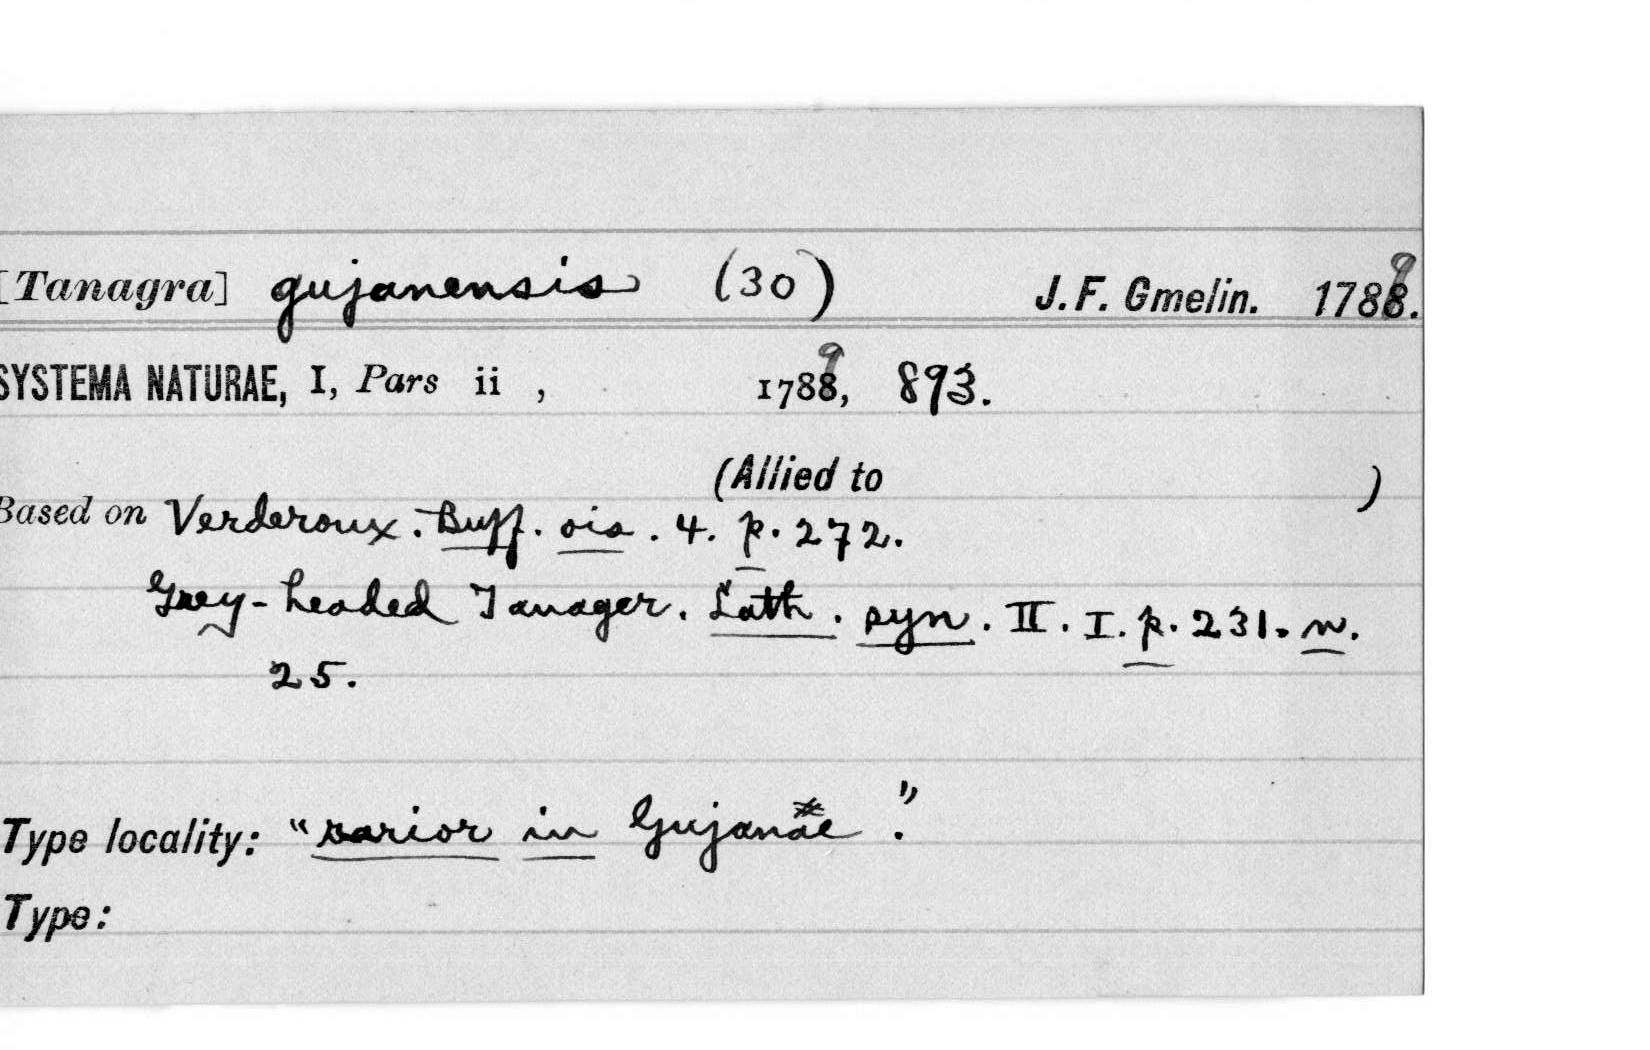 [Tanagra] gujanensis (30) J. F. Gmelin. 1789.
SYSTEMA NATURAE, I, Pars ii , 1789, 893.
(Allied to )
Based on Verderoux. Buff. ois. 4. p. 272.
Grey-headed Tanager. Lath. syn. II. I. p. 231. n.
25.
Type locality: "rarior in Gujanae."
Type: